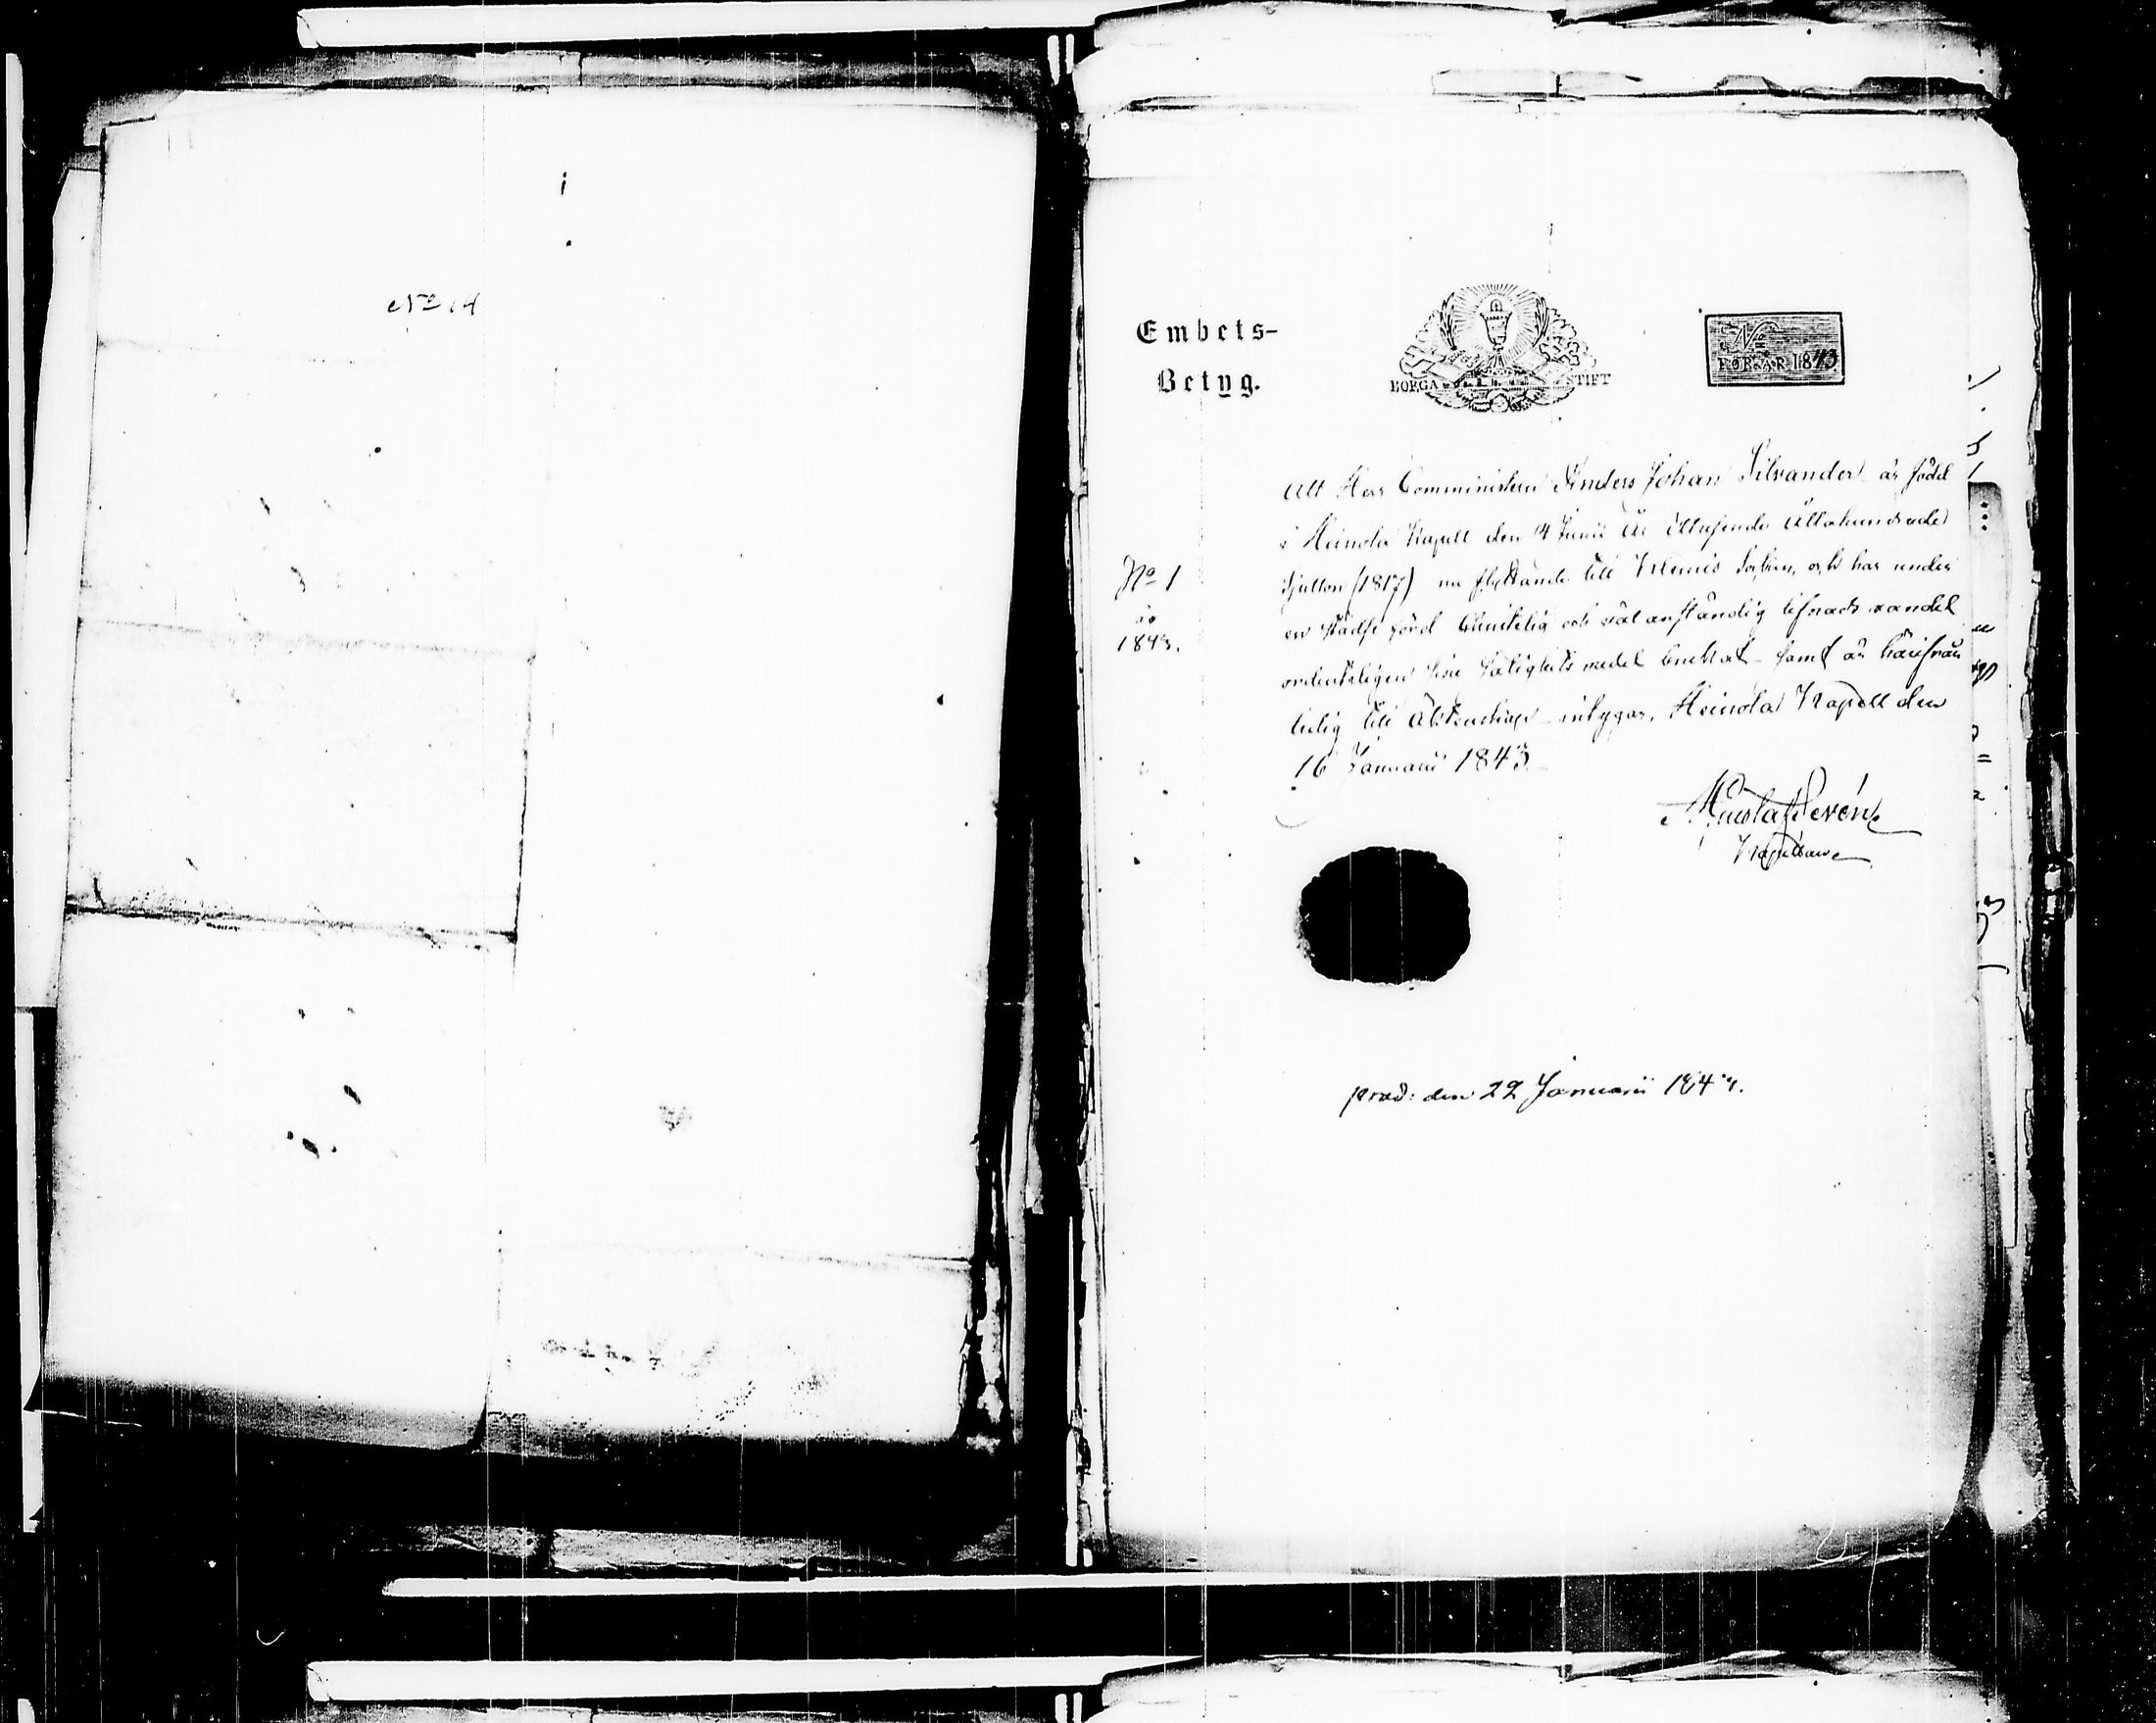 No 14
Embets-
Betyg.
BORGA STIFT
FÖR ÅR 1843
Att Herr Comministern Anders Johan Silvander är född
i Heinola Kapell den 14 Junii År Ettusende Åttahundrade
Sjutton (1817) nu flyttande till socken, och har under
No 1
år
1843.
en städse förd Christelig och väl anständig lefnads vandel
ordenteligen sine Salighets medel brukat samt är härifrån
ledig till Äktenskap intygar. Heinola Kapell den
16 Januarii 1843.
Kapellan
prod: den 22 Januarii 1843.